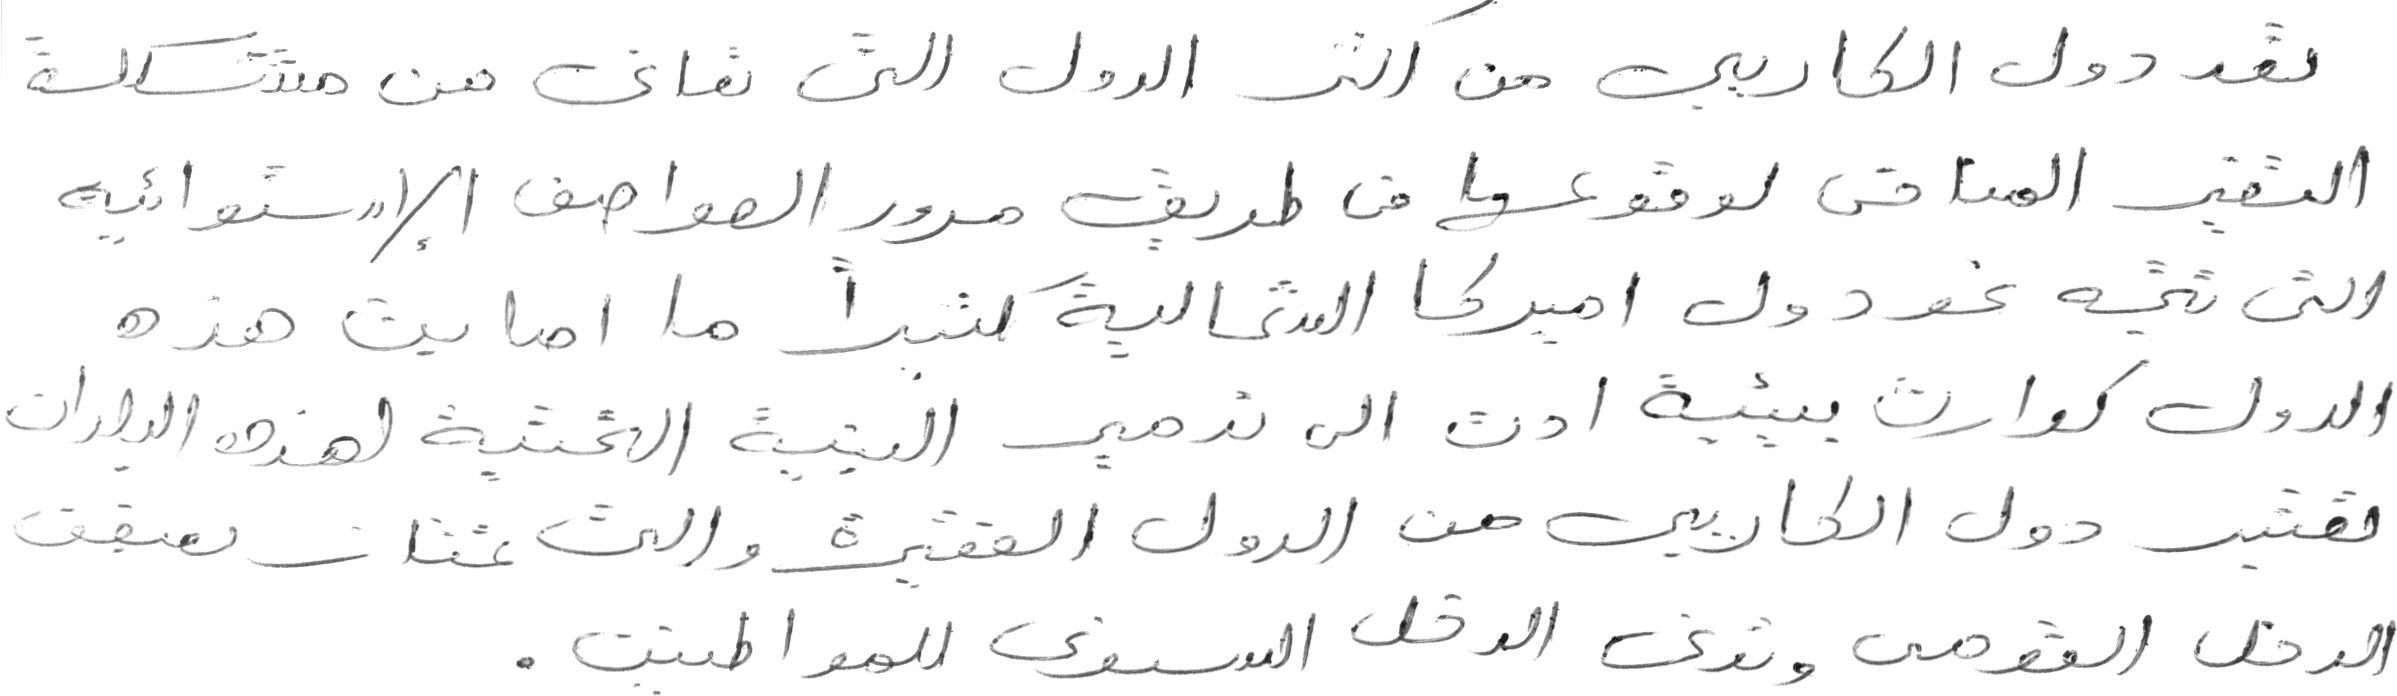 تعد دول الكاريبي من اكثر الدول التي تعاني من مشكلة
التغير المناخي لوقوعها في طريق مرور العواصف الإستوائيه
التي تتجه نحو دول اميركا الشمالية كثيراً ما اصابت هذه
الدول كوارث بيئية ادت الى تدمير البنية التحتية لهذه البلدان
تعتبر دول الكاريبي من الدول الفقيرة والتي تمتاز بضعف
الدخل القومي وتدني الدخل السنوي للمواطنين .